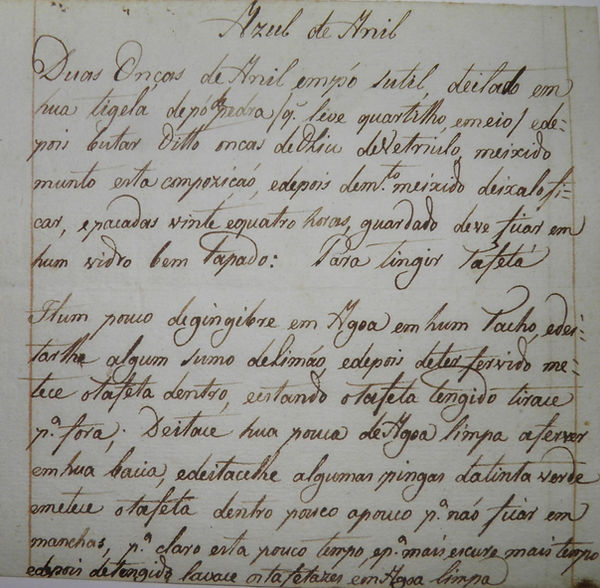 Azul de Anil
Duas Onças de Anil empó sutil, deitado em
hua tigela de pó de pedra /q. leve quartilho, emeio/ ede=
pois butar Ditto onças deOliu deVetriulo, meixido
munto esta compozição, edepois dem.to meixido deixalofi=
car, epacadas vinte equatro horas, guardado deve ficar em
hum vidro bem Tapado: Para tingir Tafetá
Hum pouco degingibre em Agoa em hum Tacho, edei=
tarlhe algum sumo deLimão, edepois deter fervido me=
tece otafeta dentro, eestando otafeta tengido tirace
p.a fora; Deitace hua pouca deAgoa limpa aferver
em hua bacia, edeitacelhe algumas pingas datinta verde
emetece otafeta dentro pouco apouco p.a não ficar em
manchas, p.a claro esta pouco tempo, ep.a mais escuro mais tempo
edepois detengido lavace ostafetazes em Agoa limpa